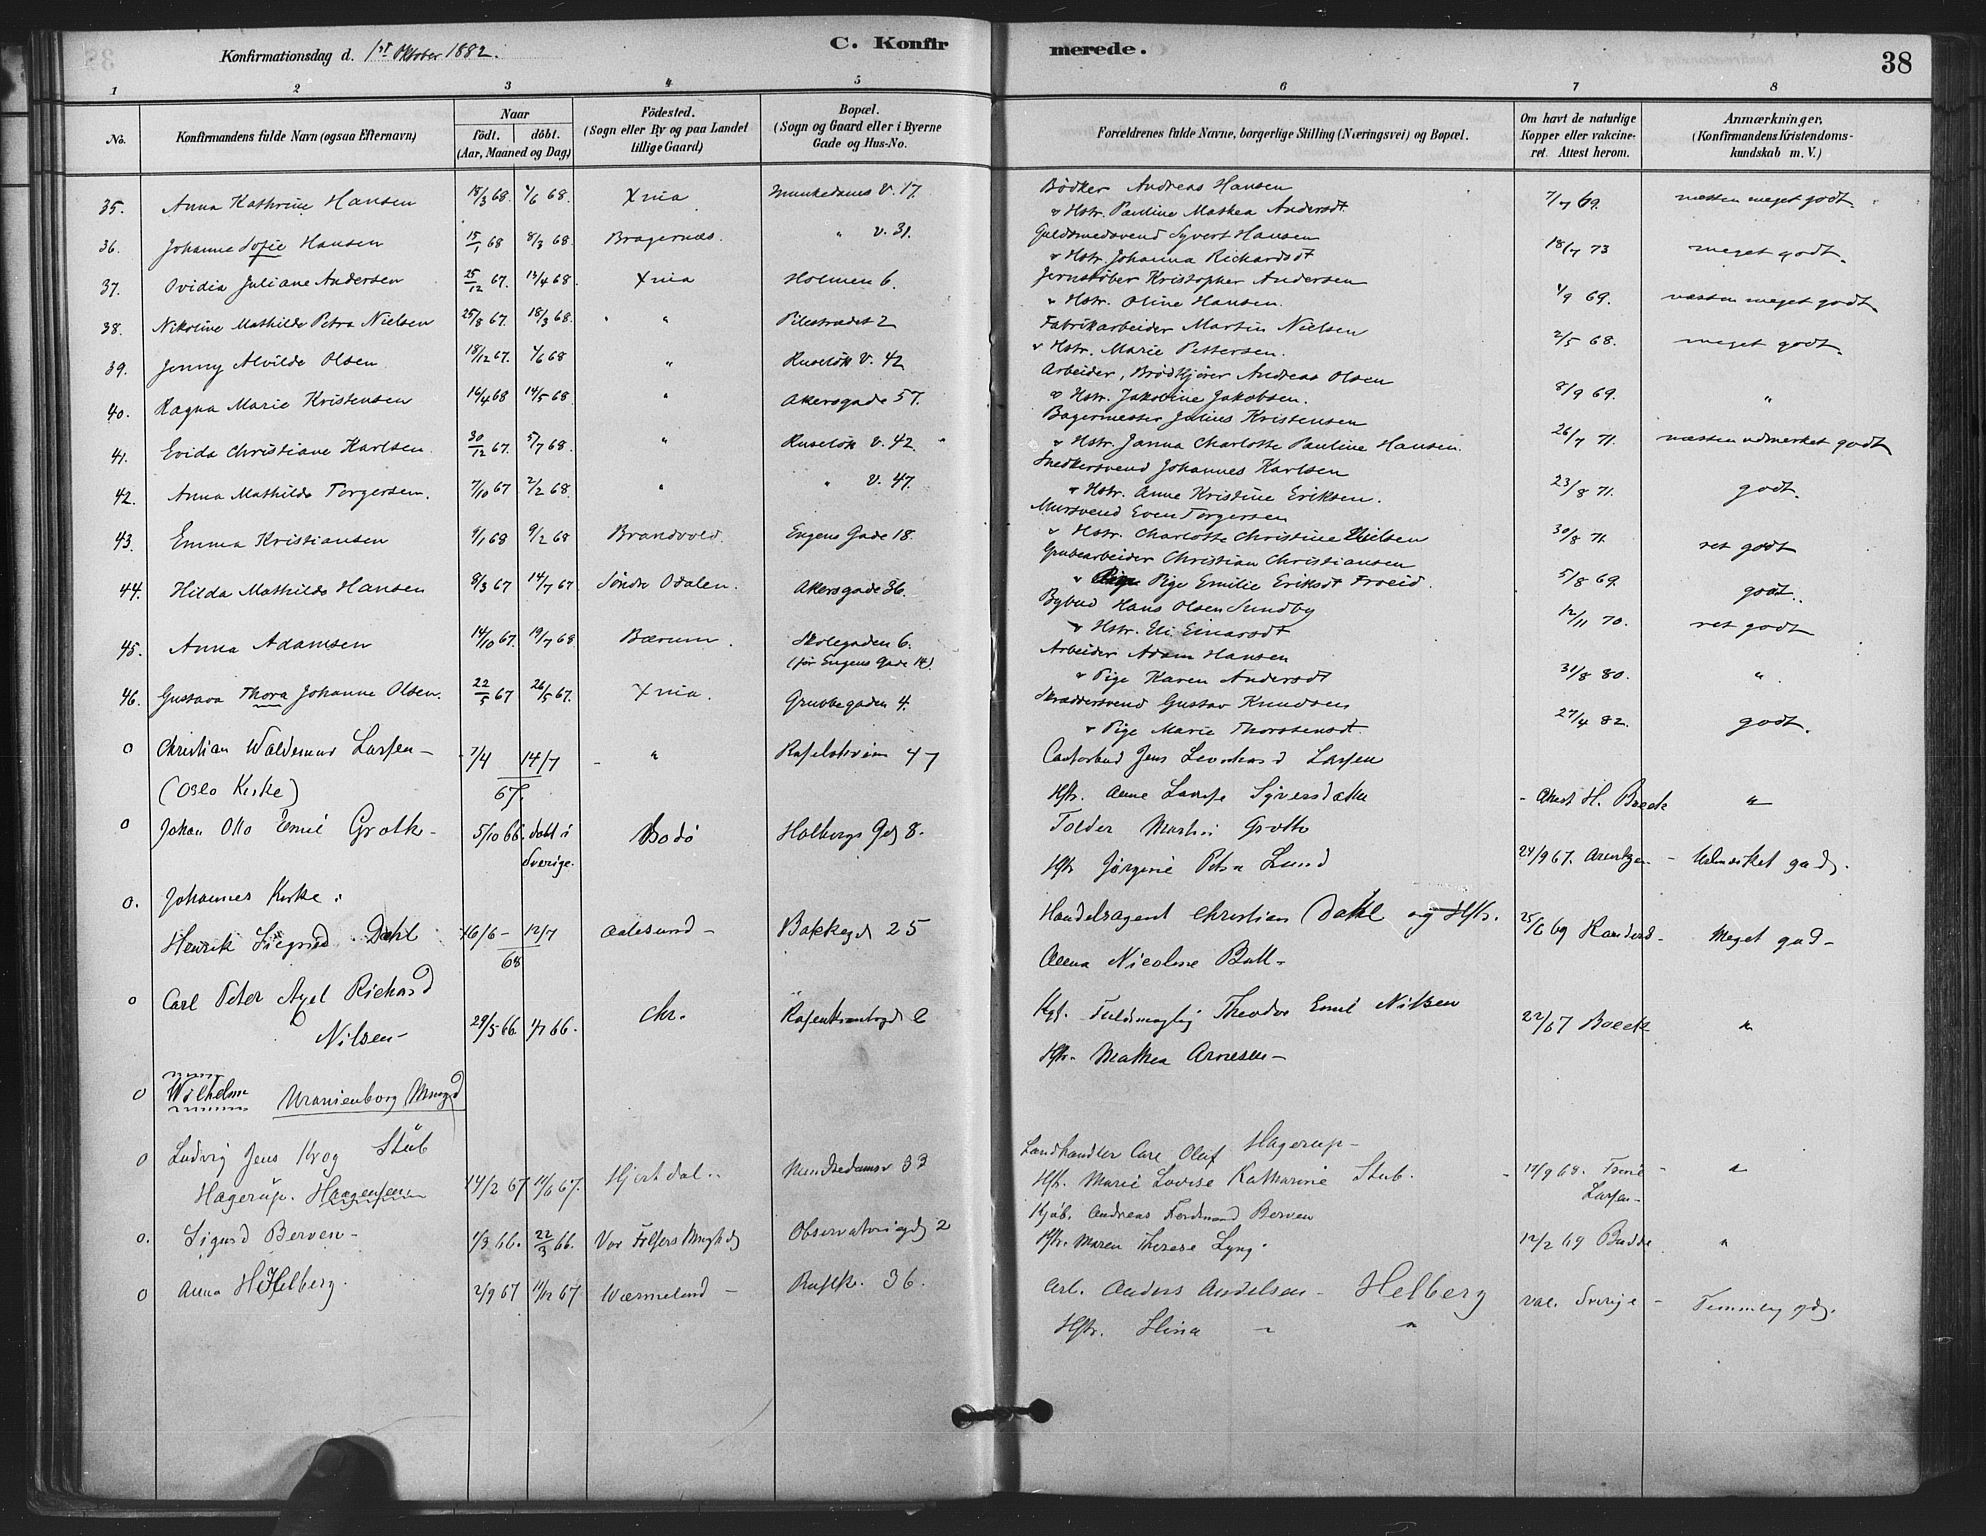 Konfirmationsdag d. 1st Oktober 1882.
C. Konfirmerede.
38
1 2 3 4 5 6 7 8
No.
Konfirmandens fulde Navn (ogsaa Efternavn)
Naar
födt. döbt.
(Aar, Maaned og Dag)
Födested.
(Sogn eller By og paa Landet
tillige Gaard)
Bopæl.
(Sogn og Gaard eller i Byerne
Gade og Hus-No.
Forældrenes fulde Navne, borgerlige Stilling (Næringsvei) og Bopæl.
Om havt de naturlige
Kopper eller vakcine-
ret. Attest herom.
Anmærkninger,
(Konfirmandens Kristendoms-
kundskab m. V.)
35. Anna Kathrine Hansen 18/3 68 1/6 68 Xnia Munkedams V. 17. Bödker Andreas Hansen 7/7 69. næsten meget godt.
" Hstr. Pauline Mathea Andersdt
36. Johanne Sofie Hansen 15/1 68 8/3 68. Bragernæs. " V. 31. Guldsmedsvend Syvert Hansen 18/7 73 meget godt.
" Hstr. Johanna Rickardsdt
37. Ovidia Juliane Andersen 25/12 67. 13/4 68 Xnia Holmen 6. Jernstöber Kristopher Andersen 4/9 69. næsten meget godt
" Hstr. Oline Hansen.
38. Nikoline Mathilde Petra Nielsen 25/8 67. 18/3 68. " " Pilestrædet 2 Fabrikarbeider Martin Nielsen 2/5 68. meget godt.
" Hstr. Marie Pettersen.
39. Jenny Alvilde Olsen 18/12 67. 1/6 68 " Ruselök V. 42 Arbeider, Brödkjörer Andreas Olsen 8/9 69. "
" Hstr. Jakobine Jakobsen.
40. Ragna Marie Kristensen 16/4 68 14/5 68 " Akersgade 57. Bagermester Julius Kristensen 26/7 71. næsten udmerket godt
" Hstr. Janna Charlotte Pauline Hansen.
41. Evida Christiane Karlsen 30/12 67. 5/7 68. " Ruselök V. 42 " Snedkersvend Johannes Karlsen 23/8 71. godt.
" Hstr. Anne Kristine Eriksen.
42. Anna Mathilde Torgersen. 7/10 67 2/2 68. " " V. 47. Mursvend Even Torgersen 30/8 71. ret godt
" Hstr. Charlotte Christine Nielsen
43. Emma Kristiansen 9/1 68 9/2 68 Brandvold. Engens Gade 18. Grubearbeider Christian Christiansen 5/8 69. godt.
" Pige Emilie Eriksdt
44. Hilda Mathilde Hansen 8/3 67 14/7 67 Söndre Odalen. Akersgade 36. Bybud Hans Olsen Sundby 12/11 70. ret godt
" Hstr. Eli Einarsdt
45. Anna Adamsen 14/10 67. 19/7 68 Bærum. Skolegaden 6. Arbeider Adam Hansen 31/8 80. "
(för Engens Gade 14). " Pige Karen Andersdt
46. Gustava Thora Johanne Olsen. 22/5 67 26/5 67. Xnia. Grubbegaden 4. Skræddersvend Gustav Knudsen 27/4 82. godt.
" Pige Marie Thorstensdt.
0 Christian Waldemar Larsen - 7/4 14/7 67. - " 47 Jens Leonhard Larsen
(Oslo Kirke) Hstr. Anne Attest H. Boeck "
0 Johan Otto Emil Groth - 5/10 66. döbt i Sverige. Bodö Holbergs Gd 8. Tolder Martin Groth
Hstr Jörgine Petra Lund 24/9 67. Udmærket god.
0. Johannes Kirke:
Henrik Sigurd Dahl 16/6 - 12/7 68 Aalesund - Bakkegd 25 Handelsagent Christian Dahl og Hstr. 25/6 69 Meget god -
Anna Nicoline Bull -
0 Carl Peter Axel Richard
Nilsen - 29/5 66. 1/7 66. Chr. Rosenkrantzgd Kgl. Fuldmægtig Theodor Emil Nilsen Boeck "
Hstr. Mathea Arnesen -
0 Wilhelm Uranienborg Menighed
0 Ludvig Jens Krog Stub Landhandler Carl Oluf Hagerup -
Hagerup. Haagensen 14/2 67 11/6 67. Hjertdal. Munkedamsv 33 Hst. Marie Lovise Katharine Stub. 17/9 68. Larsen -
0. Sigurd Berven - 1/3 66. 22/3 66. Vor Frelsers Observatoriegd 2 Kjöb. Andreas Ferdinand Berven
Hstr. Maren Therese Lyng. 12/2 69 Budde "
0 Anna Helberg. 2/9 67 11/12 67 Wærmeland - Ruslk. 36. Arb. Anders Andersen - Helberg vac. Sverige - Temmelig gd.
Hstr. Stina " "